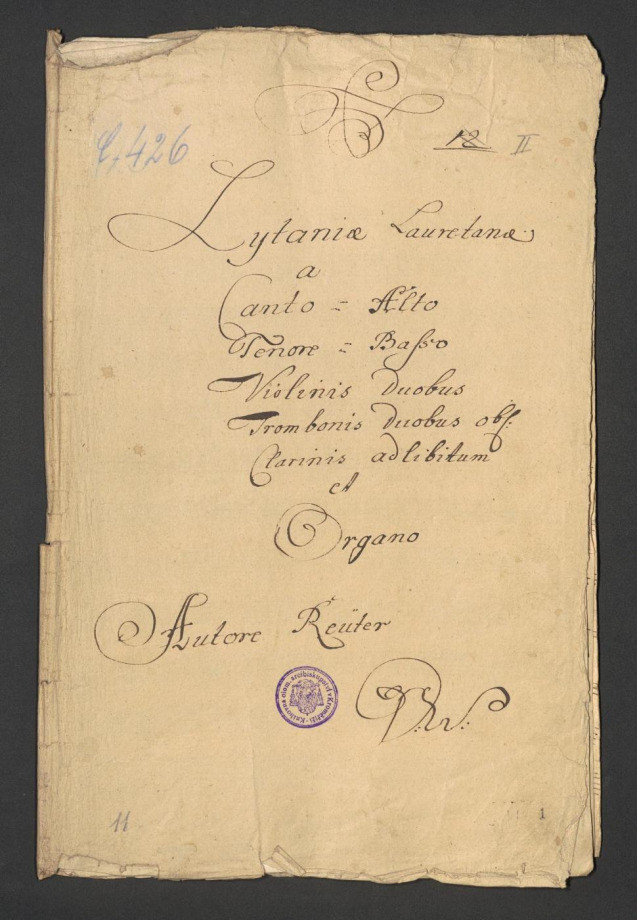 18 II
C, 426
Lytaniæ Lauretanæ
a
Canto = Alto
Tenore = Baſso
Violinis Duobus
Trombonis Duobus obl:
Clarinis ad libitum
et
Organo
Autore Reüter
Knihovna olom. arcibiskupství v Kroměříži
11
1